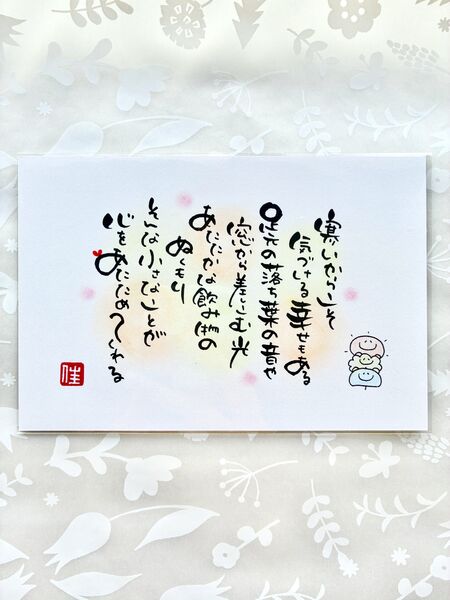 寒いからこそ
気づける幸せもある
足元の落ち葉の音や
窓から差しこむ光
あたたかな飲み物の
ぬもり
そんな小さなことが
心をあたためてくれる
佳